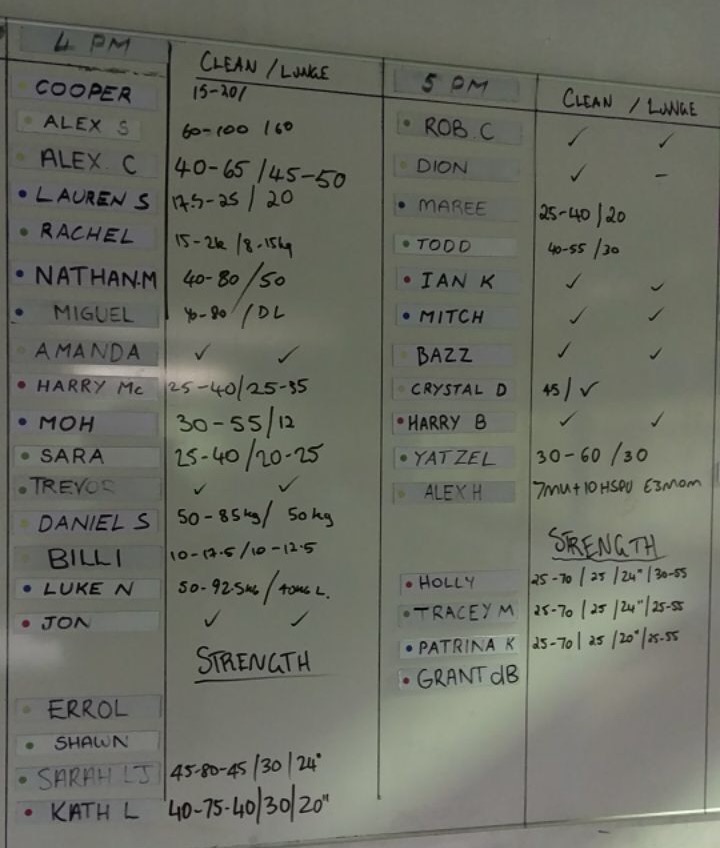 4 PM
CLEAN / LUNGE
COOPER 15-20/
ALEX S 60-100 / 60
ALEX C 40-65 / 45-50
LAUREN S 17.5-25 / 20
RACHEL 15-2k / 8-15kg
NATHAN.M 40-80 / 50
MIGUEL 40-80 / DL
AMANDA ✓ ✓
HARRY Mc 25-40/25-35
MOH 30-55/12
SARA 25-40/20-25
TREVOR ✓ ✓
DANIEL S 50-85kg/ 50kg
BILLI 10-17.5/10-12.5
LUKE N 50-92.5kg / 40kg L.
JON ✓ ✓
STRENGTH
ERROL
SHAWN
SARAH LJ 45-80-45 /30 / 24"
KATH L 40-75-40/30/20"
5 PM
CLEAN / LUNGE
ROB C ✓ ✓
DION ✓ –
MAREE 25-40 / 20
TODD 40-55 / 30
IAN K ✓ ✓
MITCH ✓ ✓
BAZZ ✓ ✓
CRYSTAL D 45 / ✓
HARRY B ✓ ✓
YATZEL 30-60 / 30
ALEX H 7MU+10HSPU E3MOM
STRENGTH
HOLLY 25-70 / 25 / 24" / 30-55
TRACEY M 25-70 / 25 / 24" / 25-55
PATRINA K 25-70 / 25 / 20" / 25-55
GRANT dB